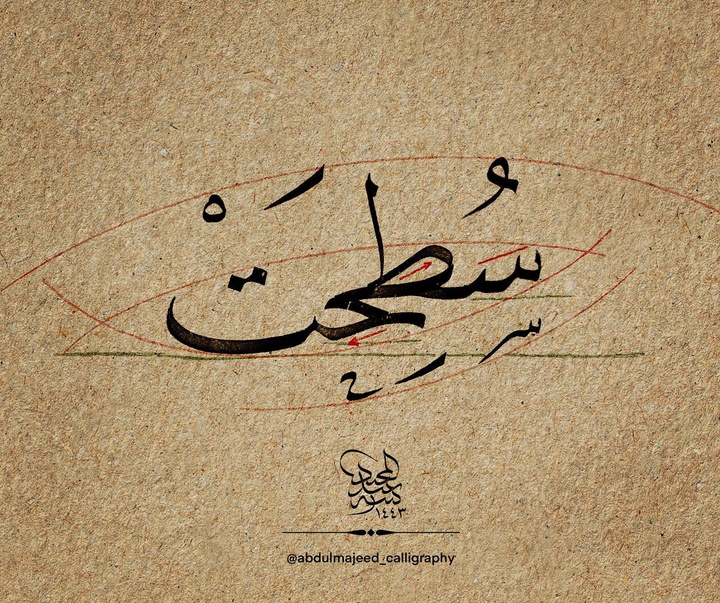 سُطِحَتْ
كتبه عبد المجيد
١٤٤٣
@abdulmajeed_calligraphy